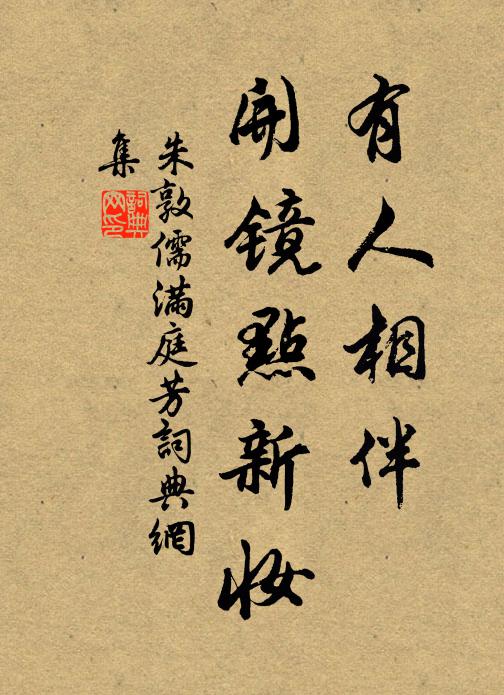 有人相伴
開镜點新妆
朱敦儒滿庭芳詞典網
集
詞典网印